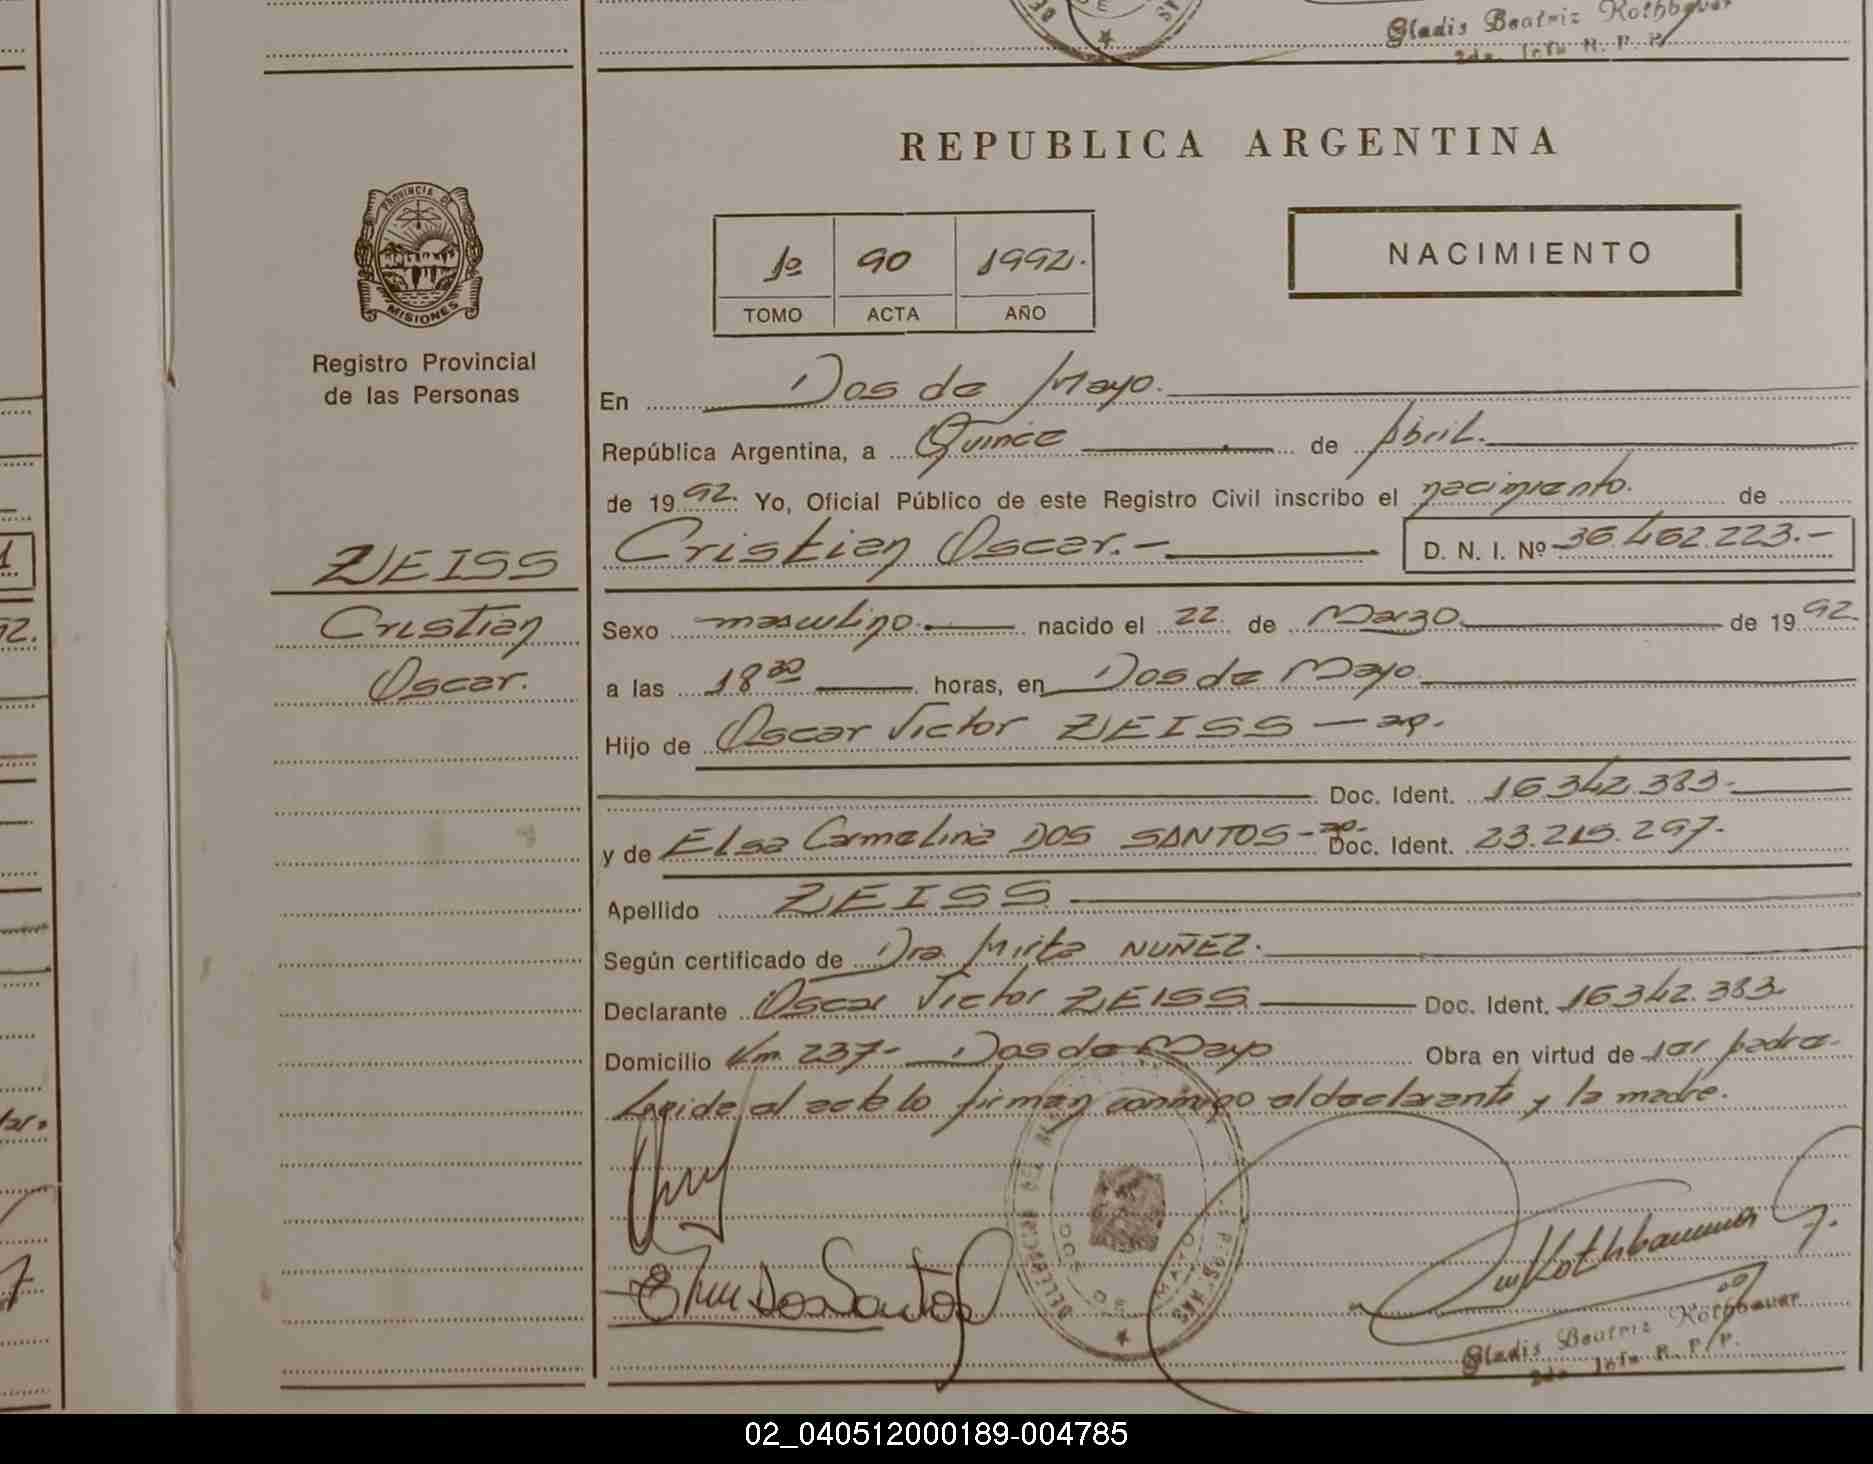 Gladis Beatriz Rothbauer
REPUBLICA ARGENTINA
PROVINCIA DE
MISIONES
Registro Provincial
de las Personas
1º 90 1992.
TOMO ACTA AÑO
NACIMIENTO
En Dos de Mayo.
República Argentina, a Quince de Abril.
de 1992. Yo, Oficial Público de este Registro Civil inscribo el nacimiento. de
ZEISS
Cristian
Oscar.
Cristian Oscar.- D. N. I. Nº 36.462.223.-
Sexo masculino. nacido el 22 de Marzo de 1992.
a las 18 30 horas, en Dos de Mayo.
Hijo de Oscar Victor ZEISS - ap.
Doc. Ident. 16.342.383.-
y de Elsa Carmelina DOS SANTOS - ap. Doc. Ident. 23.215.297.-
Apellido ZEISS
Según certificado de Dra Mirta NUÑEZ.
Declarante Oscar Victor ZEISS Doc. Ident. 16342.383.
Domicilio Km. 237- Dos de Mayo Obra en virtud de ser padre.
Leida el acta lo firman conmigo el declarante y la madre.
Elsa Dos Santos
Gladis Beatriz Rothbauer
02_040512000189-004785